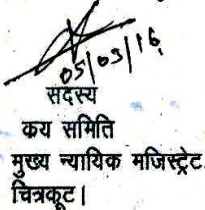 05/03/16
सदस्य
कय समिति
मुख्य न्यायिक मजिस्ट्रेट
चित्रकूट।